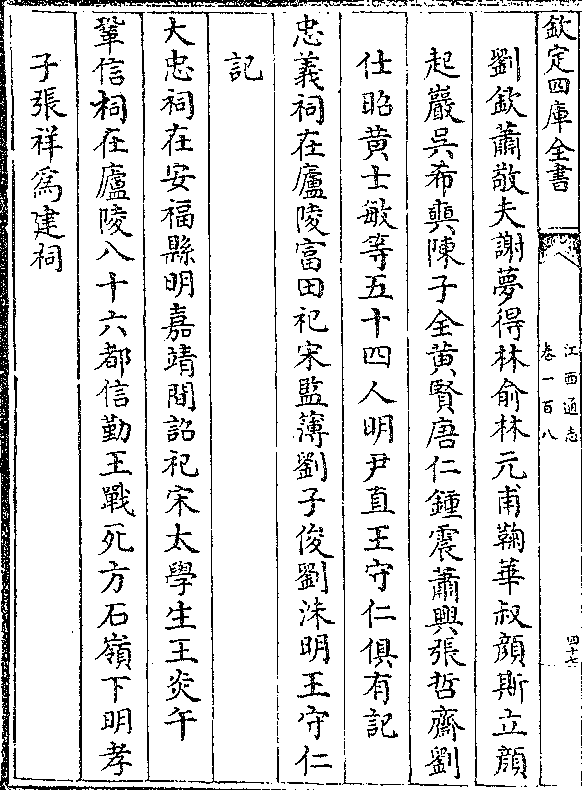 欽定四庫全書
江西通志
卷一百八
四十七
劉欽蕭敬夫謝夢得林俞林元甫鞠華叔顔斯立顔
起巖吴希奭陳子全黄賢唐仁鍾震蕭興張哲齋劉
仕昭黄士敏等五十四人明尹直王守仁俱有記
忠義祠在廬陵富田祀宋監簿劉子俊劉洙明王守仁
記
大忠祠在安福縣明嘉靖間詔祀宋太學生王炎午
鞏信祠在廬陵八十六都信勤王戰死方石嶺下明孝
子張祥爲建祠